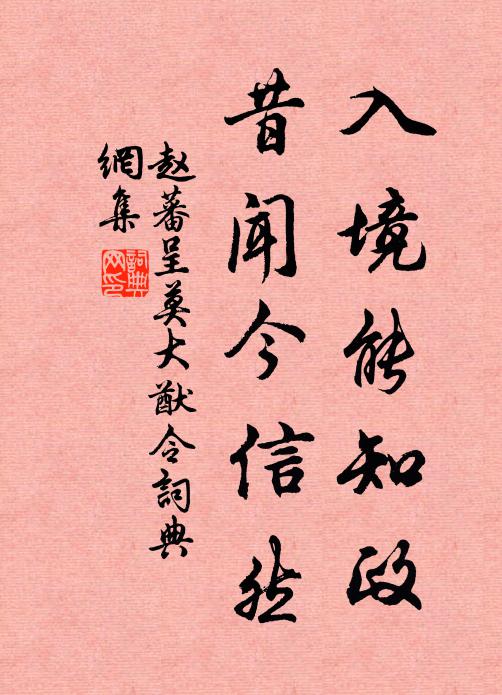 入境能知政
昔闻今信然
赵蕃呈莫大猷令詞典
網集
詞典
网印